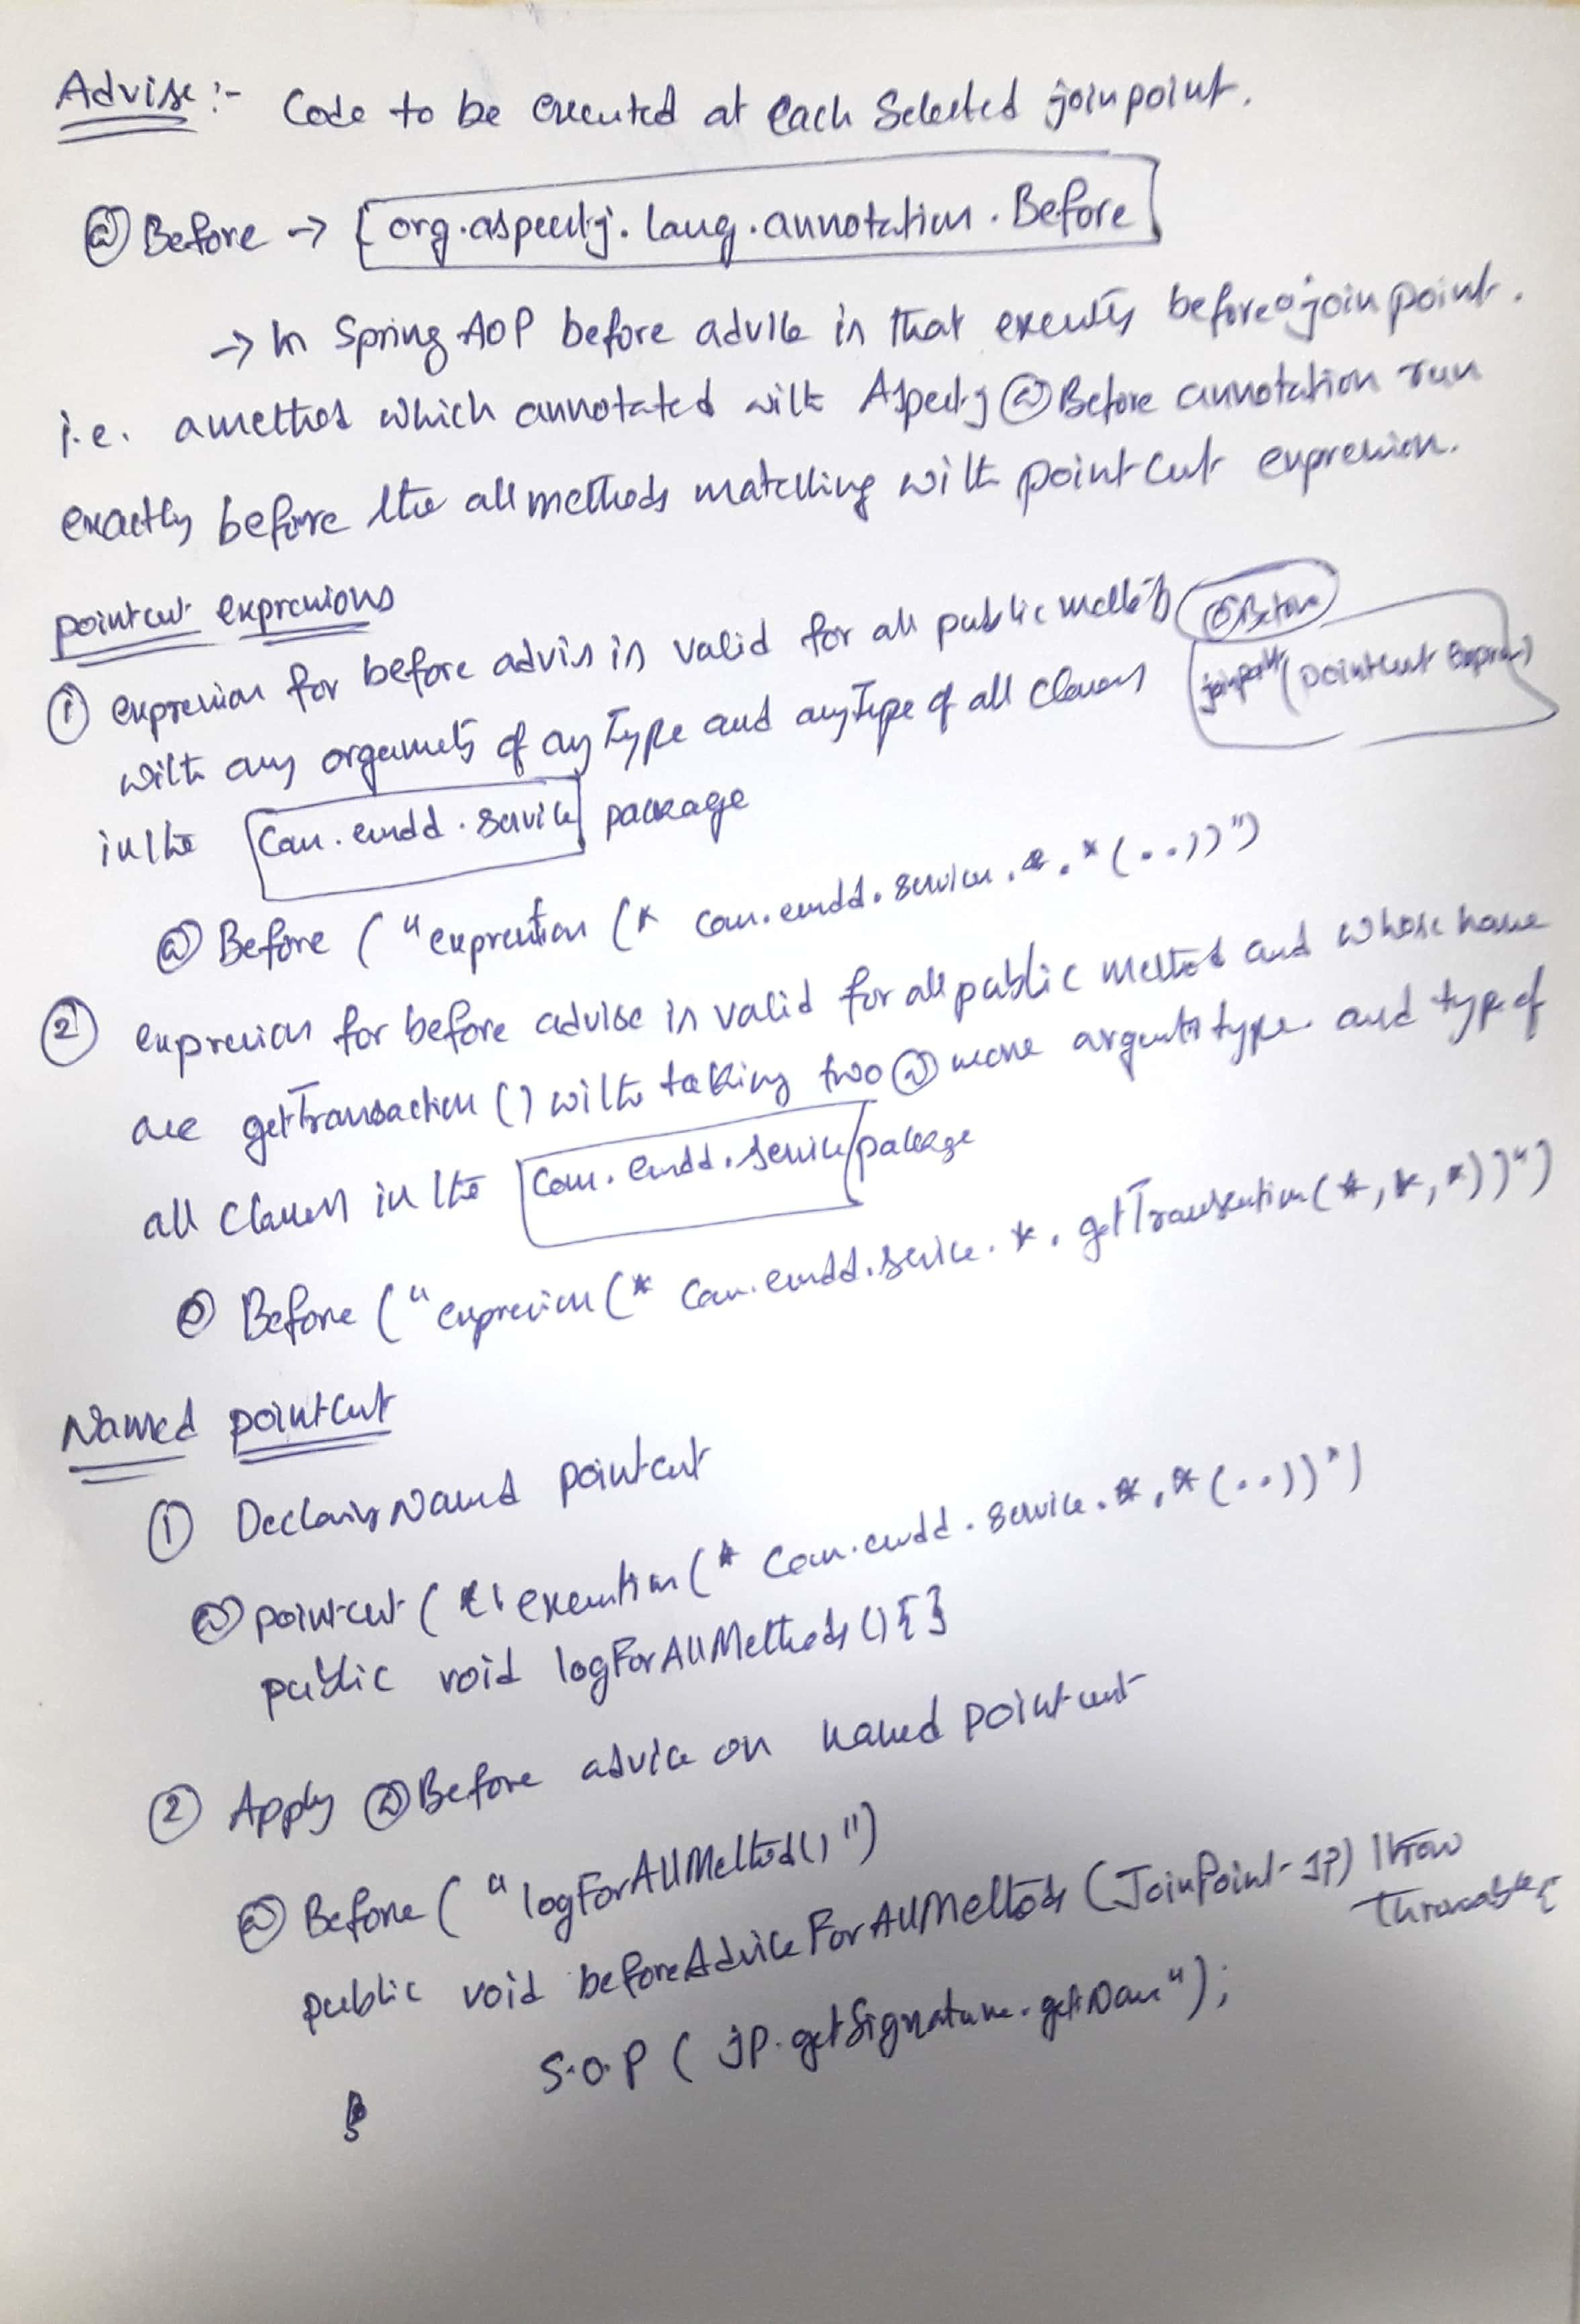 Advise :- Code to be executed at each Selected joinpoint.
@Before → [org.aspectj.lang.annotation.Before]
→ In Spring AOP before advice is that executes before a join point.
i.e. a method which annotated with Aspectj @Before annotation run
exactly before the all methods matching with pointcut expression.
pointcut expressions
① expression for before advis is valid for all public methods
@Before
joinpoint (pointcut Express)
with any orguments of any Type and anyType of all classes
in the com.emdd.service package
@Before ("expression (* com.emdd.service.*.*(..))")
② expression for before advise is valid for all public method and whose name
are getTransaction() with taking two @ more arguments type and type of
all classes in the com.emdd.service package
@ Before ("expression (* com.emdd.service.*.getTransaction(*,*,*))")
Named pointcut
① Declairs Named pointcut
@pointcut ("execution(* com.emdd.service.*.*(..))")
public void logForAllMethods(){}
② Apply @Before advice on named pointcut
@Before ("logForAllMethod()")
public void beforeAdviceForAllMethods (JoinPoint JP) throw
Throwable{
S.O.P (jP.getSignature.getNam");
}